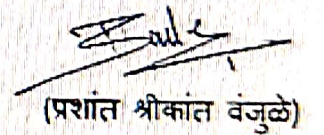 (प्रशांत श्रीकांत वंजुळे)